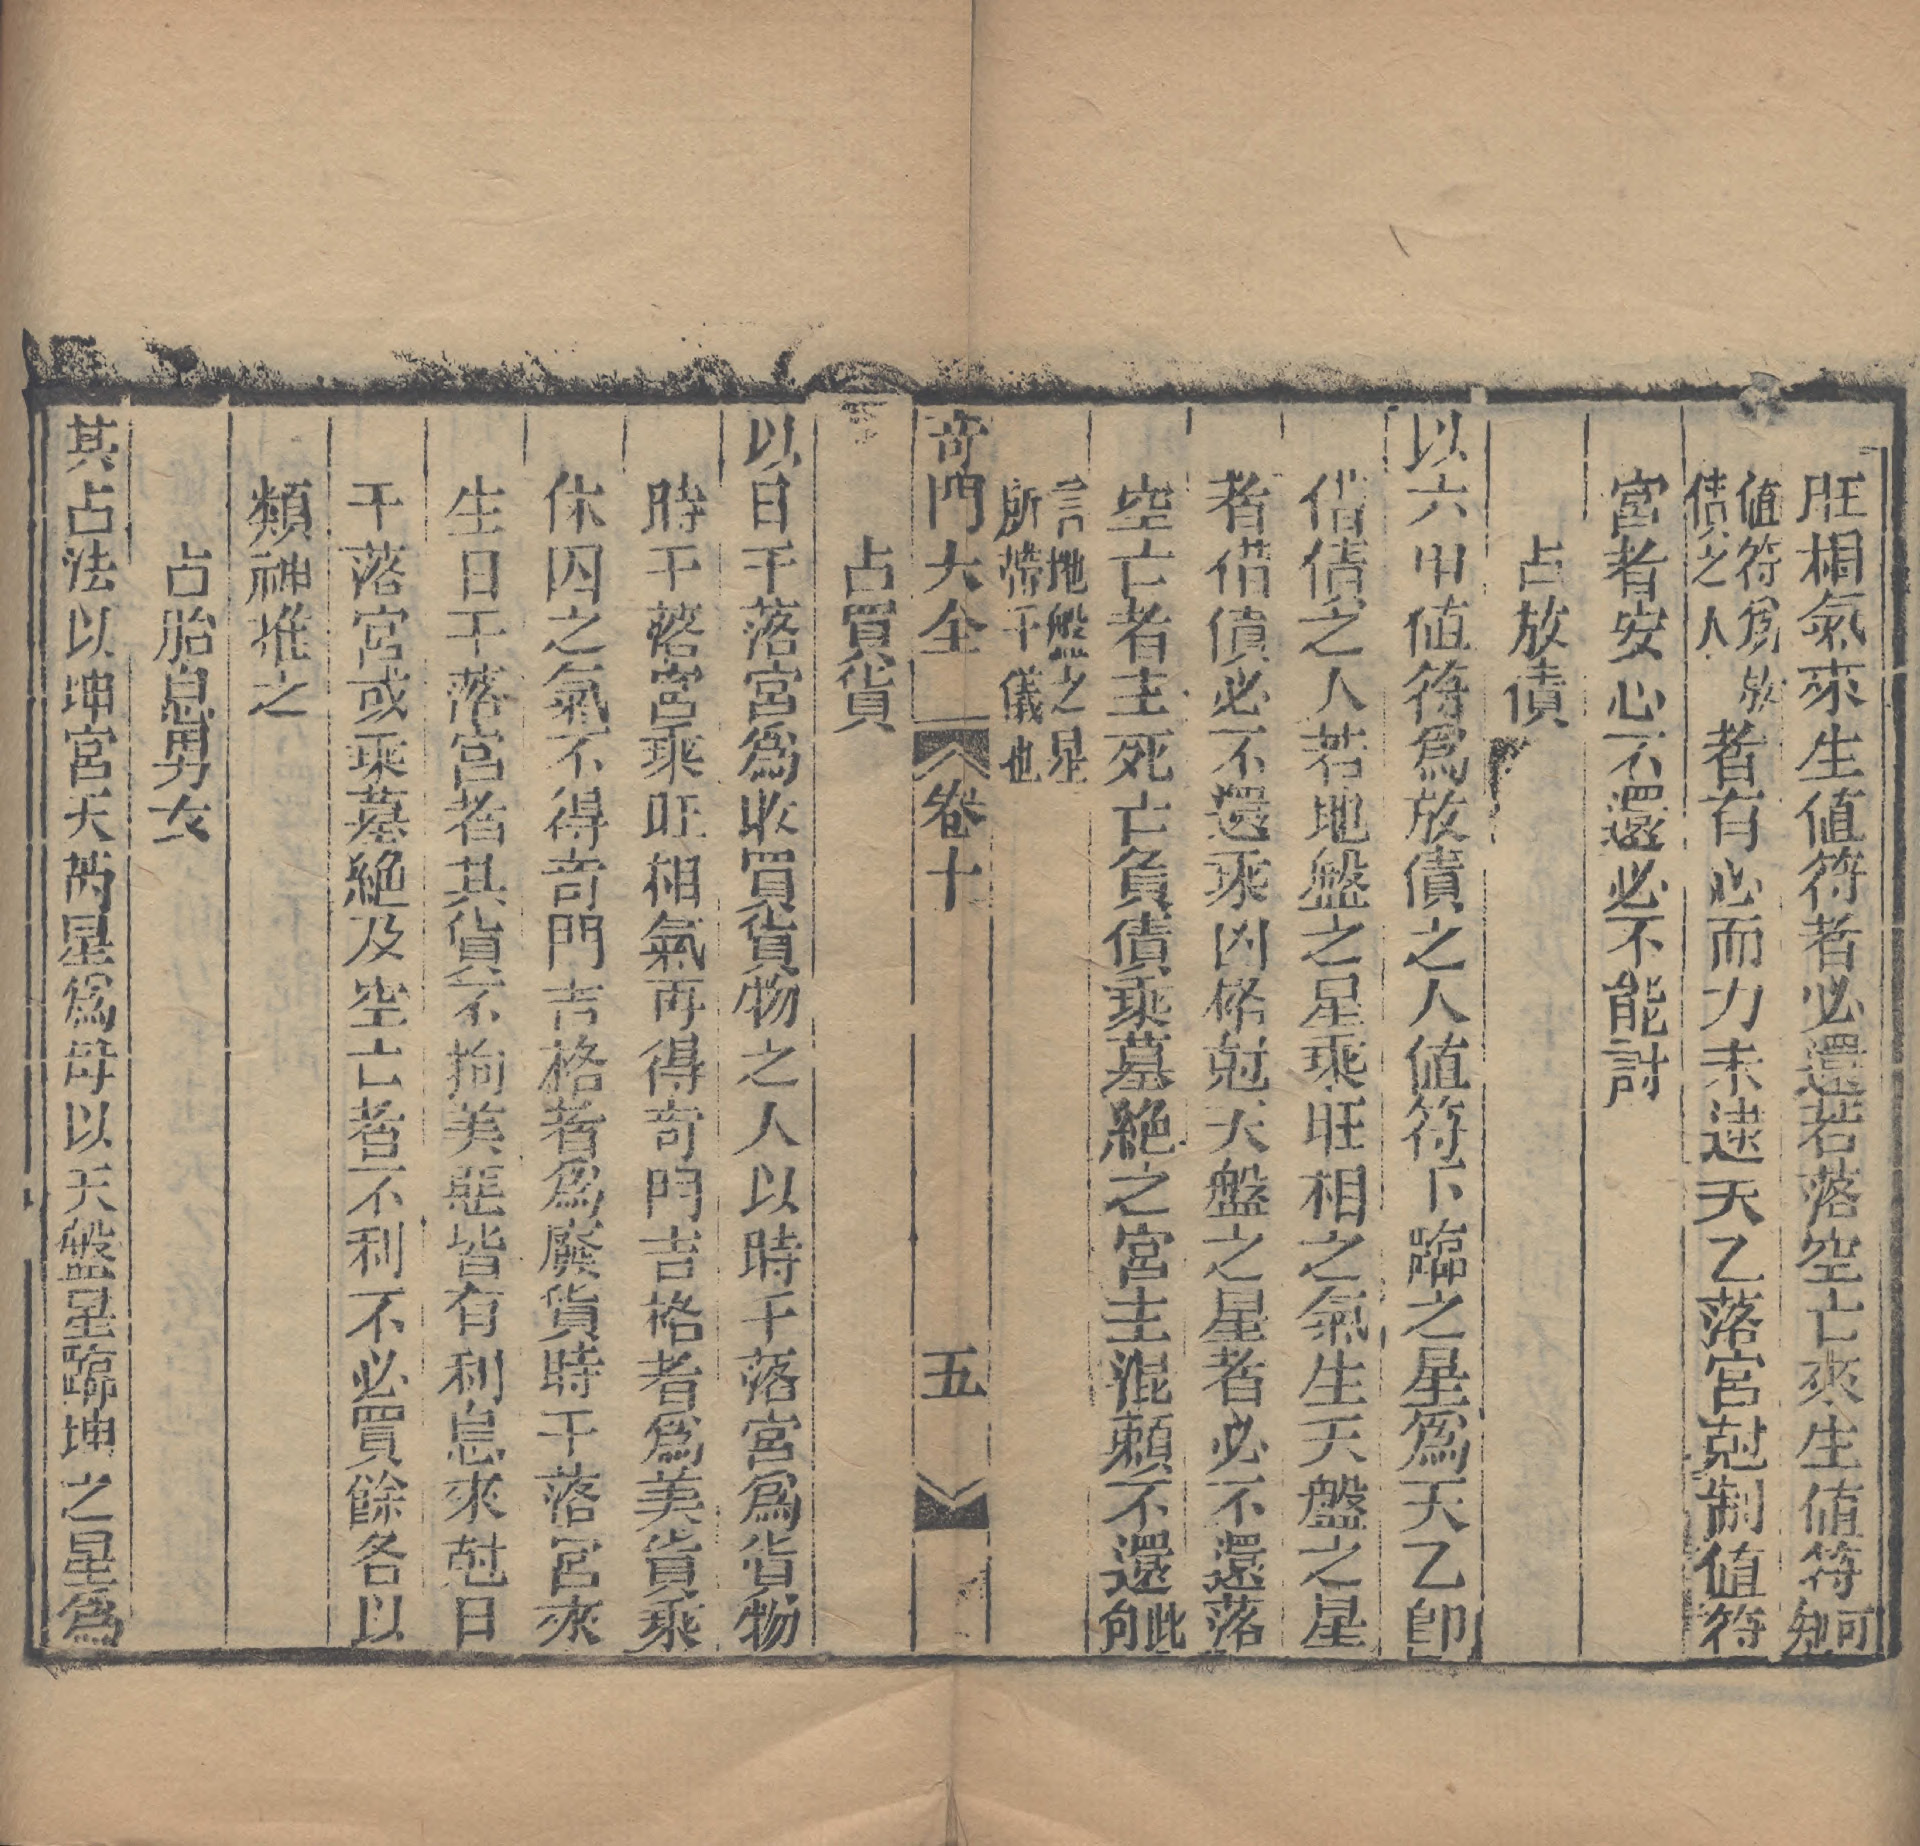 旺相氣來生值符者必還若落空亡來生值符可知
值符爲放債之人者有必而力未逮天乙落宮尅制值符
宮者安心不還必不能討
占放債
以六甲值符爲放債之人值符下臨之星爲天乙卽
借債之人若地盤之星乘旺相之氣生天盤之星
者借債必不還乘凶格尅天盤之星者必不還落
空亡者主死亡負債乘墓絶之宮主混賴不還此句
言地盤之星所帶干儀也
奇門大全 卷十 五
占買貨
以日干落宮爲收買貨物之人以時干落宮爲貨物
時干落宮乘旺相氣再得奇門吉格者爲美貨乘
休囚之氣不得奇門吉格者爲廢貨時干落宮來
生日干落宮者其貨不拘美惡皆有利息來尅日
干落宮或乘墓絶及空亡者不利不必買餘各以
類神堆之
占胎息男女
其占法以坤宮天芮星爲母以天盤星臨坤之星爲